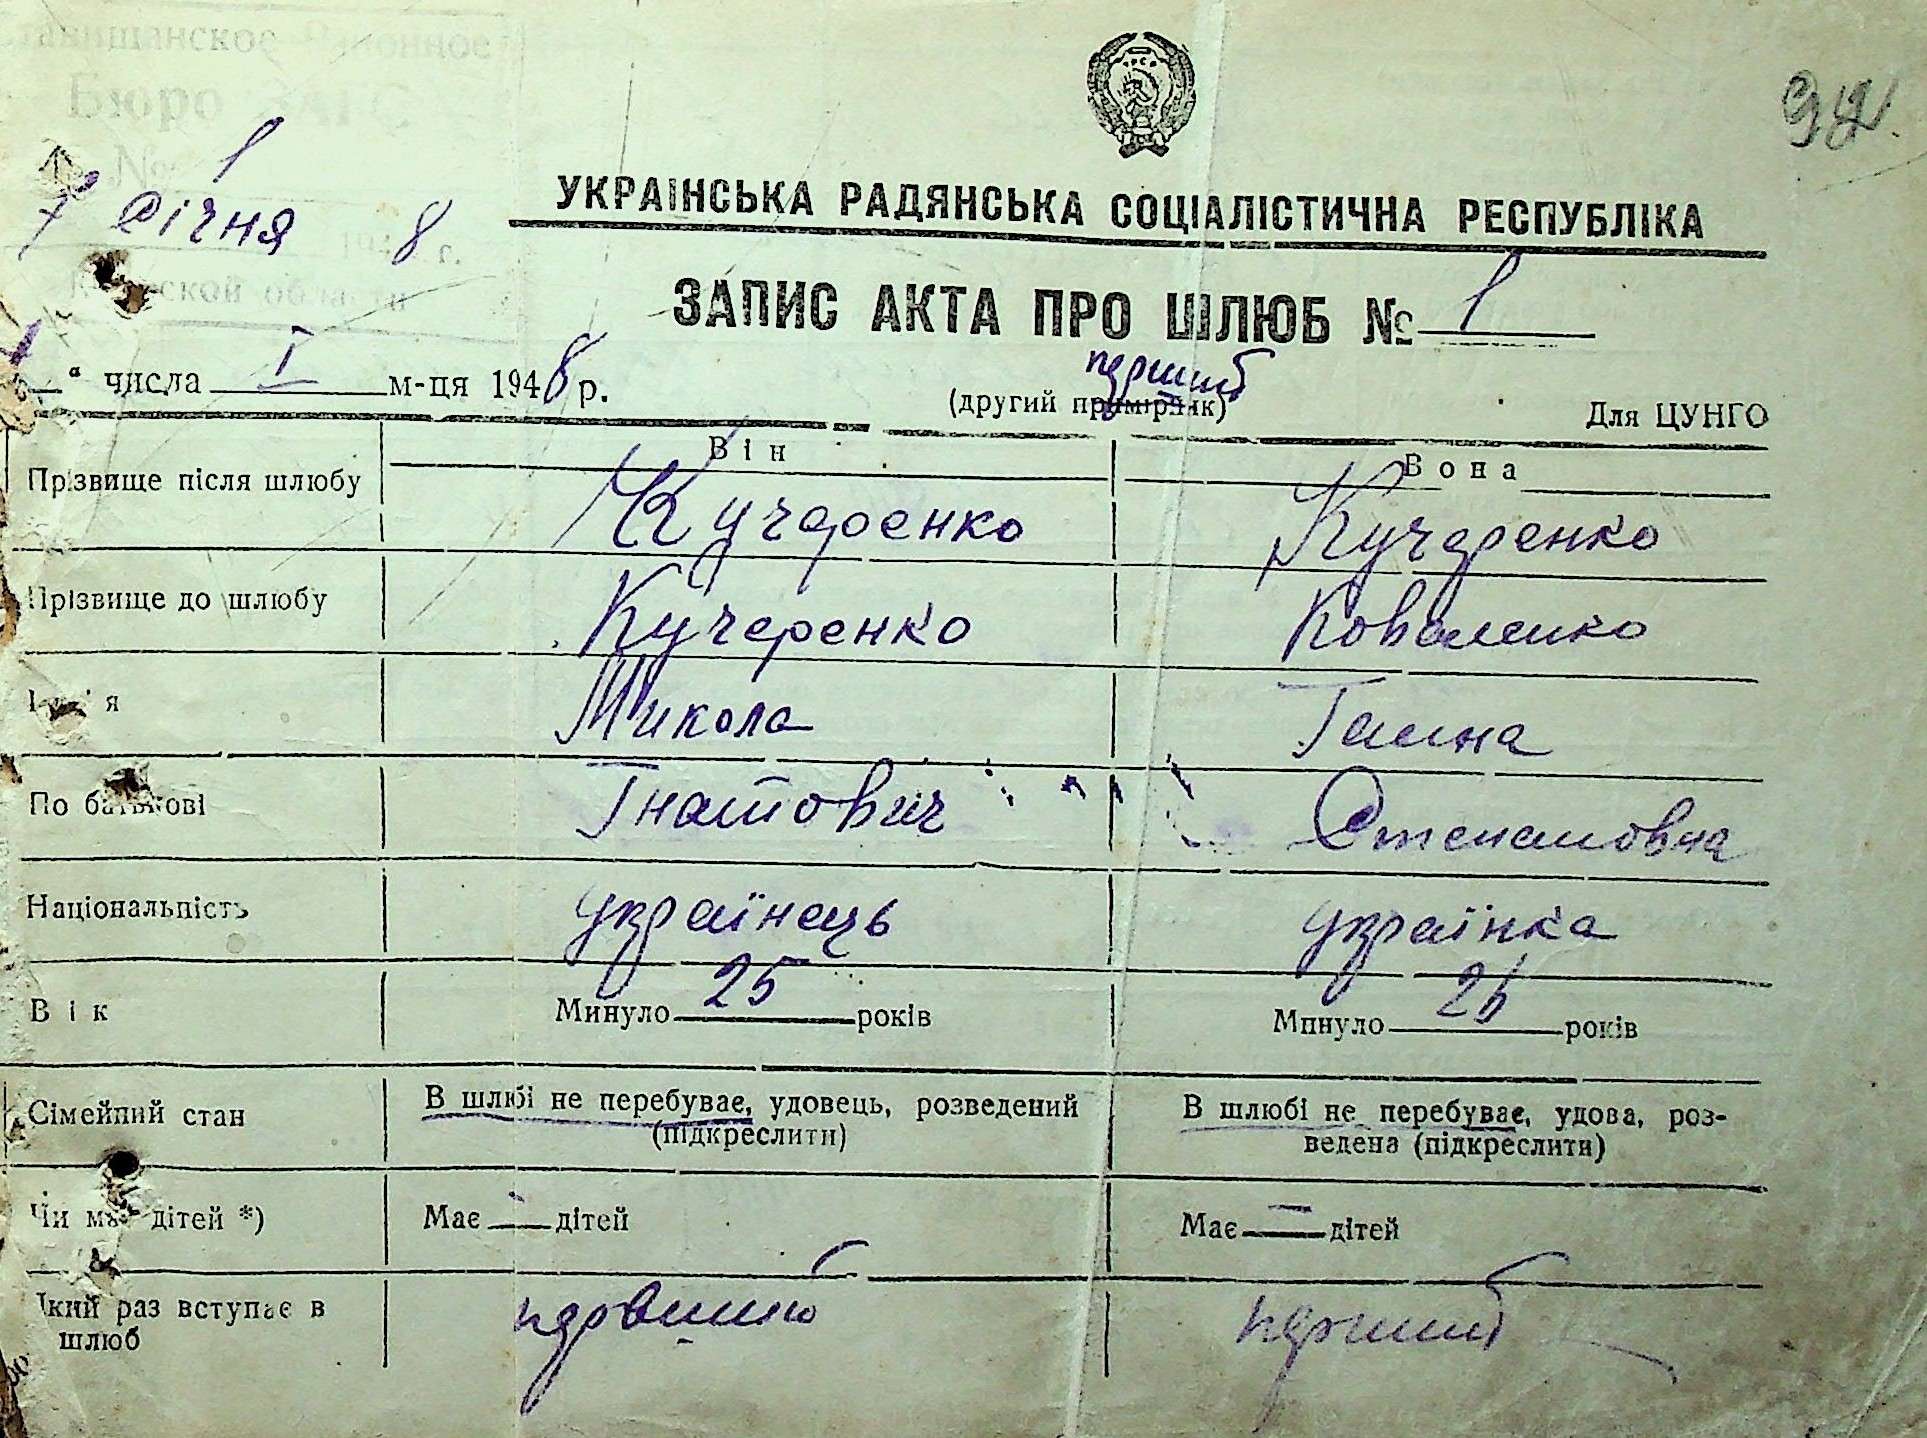 Ставищанское Районное
Бюро ЗАГС
№ 1
7 січня 1948 г.
Киевской области
УРСР
92
УКРАЇНСЬКА РАДЯНСЬКА СОЦІАЛІСТИЧНА РЕСПУБЛІКА
ЗАПИС АКТА ПРО ШЛЮБ № 1
" числа I м-ця 1948 р.
перший
(другий примірник)
Для ЦУНГО
Він Вона
Прізвище після шлюбу Кучеренко Кучеренко
Прізвище до шлюбу Кучеренко Коваленко
Ім'я Микола Ганна
По батькові Гнатович Степановна
Національність українець українка
Вік Минуло 25 років Минуло 26 років
Сімейний стан В шлюбі не перебуває, удовець, розведений В шлюбі не перебуває, удова, роз-
(підкреслити) ведена (підкреслити)
Чи має дітей *) Має — дітей Має — дітей
Який раз вступає в
шлюб перший перший